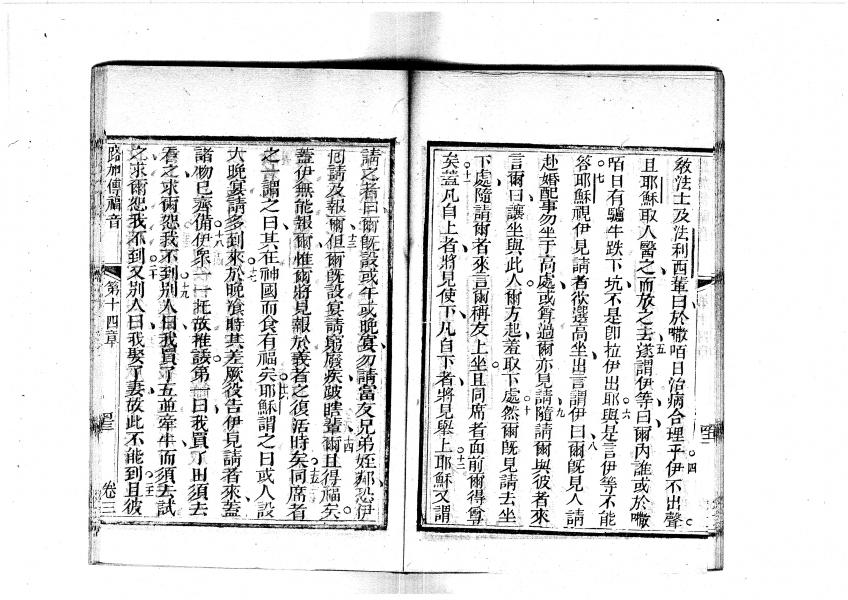 教法士及法利西輩曰於嘥咟日治病合理乎伊不出聲。
且耶穌取人醫之而放之去。遂謂伊等曰爾內誰或於嘥
咟日有驢牛跌下坑不是卽拉伊出耶。與是言伊等不能
答。耶穌視伊見請者欲選高坐出言謂伊曰爾旣見人請
赴婚配事勿坐于高處或算過爾亦見請。隨請爾與彼者來
言爾曰讓坐與此人。爾方起羞取下處。然爾旣見請去坐
下處隨請爾者來言爾稱友上坐。且同席者面前爾得尊
矣。蓋凡自上者將見使下凡自下者將見舉上。耶穌又謂
請之者曰爾旣設或午或晚宴勿請富友兄弟姪鄰恐伊
囘請及報爾。但爾旣設宴請窮廢疾跛瞎輩。爾且得福矣。
蓋伊無能報爾惟爾將見報於義者之復活時矣。同席者
之一謂之曰其在神國而食有福矣。耶穌謂之曰或人設
大晚宴請多到來。於晚飧時其差厥役告伊見請者來蓋
諸物已齊備。伊衆一一托故推諉。第一曰我買了田須去
看之求爾恕我不到。別人曰我買了五並牽牛而須去試
之求爾恕我不到。又別人曰我娶了妻故此不能到。且彼
路加傳福音 第十四章 卷三